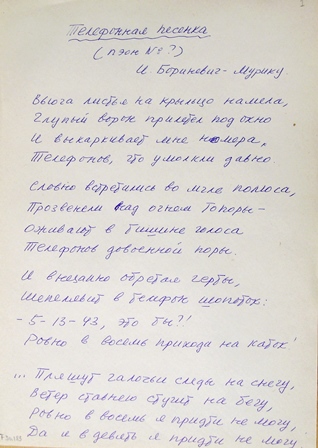 1
Телефонная песенка
(пэон № ?)
И. Бораневич-Мурику.
Вьюга листья на крыльцо намела,
Глупый ворон прилетел под окно
И выкаркивает мне номера,
Телефонов, что умолкли давно.
Словно встретились во мгле полюса,
Прозвенели над огнем топоры –
Оживают в тишине голоса
Телефонов довоенной поры.
И внезапно обретая черты,
Шепелявит в телефон шопоток:
– 5-13-43, это ты?!
Ровно в восемь приходи на каток!
... Пляшут галочьи следы на снегу,
Ветер ставнею стучит на бегу,
Ровно в восемь я придти не могу,
Да и в девять я придти не могу.